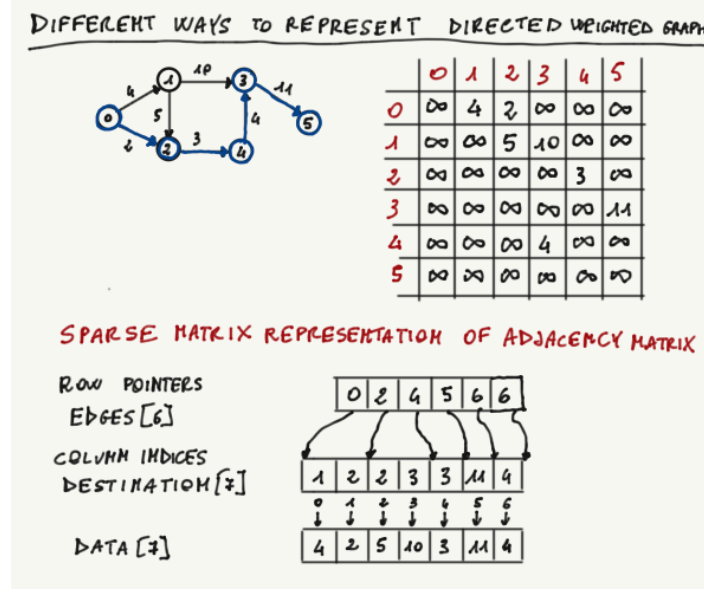 DIFFERENT WAYS TO REPRESENT DIRECTED WEIGHTED GRAPH
1 10 3 11
4 5 4 5
0 2 2 3 4
0 1 2 3 4 5
0 ∞ 4 2 ∞ ∞ ∞
1 ∞ ∞ 5 10 ∞ ∞
2 ∞ ∞ ∞ ∞ 3 ∞
3 ∞ ∞ ∞ ∞ ∞ 11
4 ∞ ∞ ∞ 4 ∞ ∞
5 ∞ ∞ ∞ ∞ ∞ ∞
SPARSE MATRIX REPRESENTATION OF ADJACENCY MATRIX
ROW POINTERS
EDGES[6]
0 2 4 5 6 6
COLUMN INDICES
DESTINATION[7]
1 2 2 3 3 11 4
0 1 2 3 4 5 6
DATA[7]
4 2 5 10 3 11 4